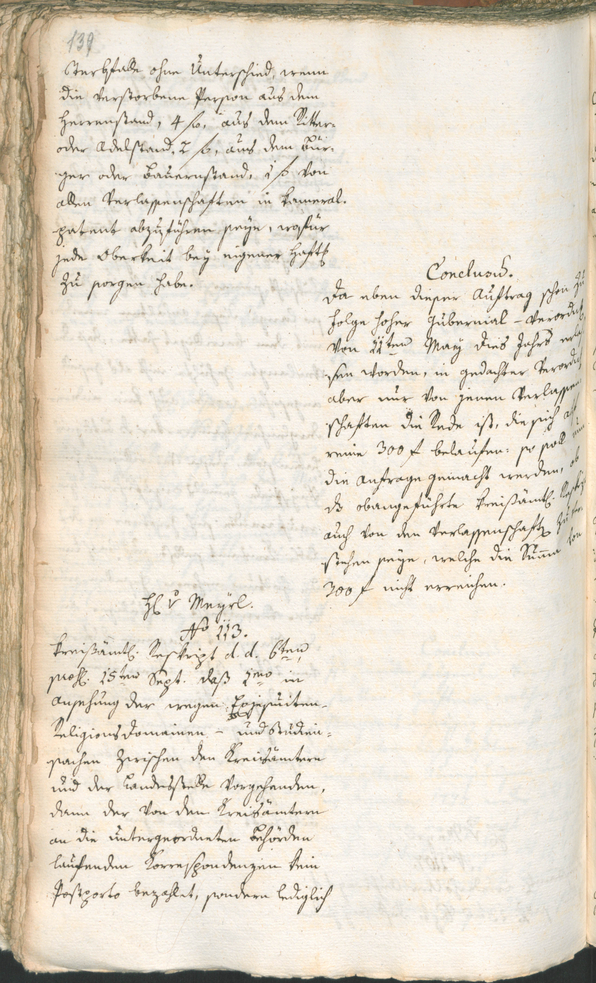 139
Sterbfalle ohne Unterschied, wenn
die verstorbene Person aus dem
Herrenstand, 4 f., aus dem Ritter-
oder Adelstand, 2 f., aus dem Bür-
ger oder Bauernstand, 1 f. von
allen Verlassenschaften in Kameral-
patent abzuführen seye, wofür
jede Obrigkeit bey eigener Haftg
zu sorgen habe.
Conclusũ.
Da eben dieser Auftrag schon zu
folge hoher Gubernial-Verordng
von 22ten May dies Jahrs erlas
sen worden, in gedachter Verordng
aber nur von jenen Verlassen
schaften die Rede ist, die sich auf
reine 300 f belaufen: so soll
die Anfrage gemacht werden, ob
ds obangeführte Kreisämtl. Reskript
auch von den Verlassenschaften zu ver
stehen seye, welche die Summe von
300 f nicht erreichen.
H. v Meyrl.
No 113.
Kreisämtl. Reskript d. d. 6ten
prs. 15ten Sept. daß 1mo in
Ansehung der wegen Exjesuiten-
Religions Domainen- und Studien-
sachen zwischen den Kreisämtern
und der Landesstelle vorgehenden,
dann der von den Kreisämtern
an die untergeordneten Behörden
laufenden Korrespondenzen kein
Postporto bezahlet, sondern lediglich